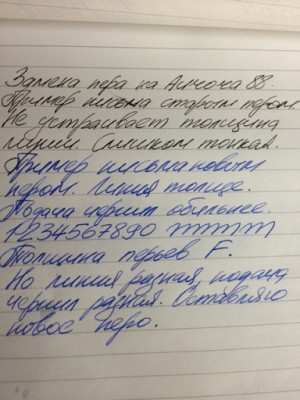 Замена пера на Алчоча 88.
Пример письма старым пером.
Не устраивает толщина
линии. Слишком тонкая.
Пример письма новым
пером. Линия толще.
Подача чернил обильнее.
1234567890 mmmm
Толщина перьев F.
Но линия разная, подача
чернил разная. Оставляю
новое перо.